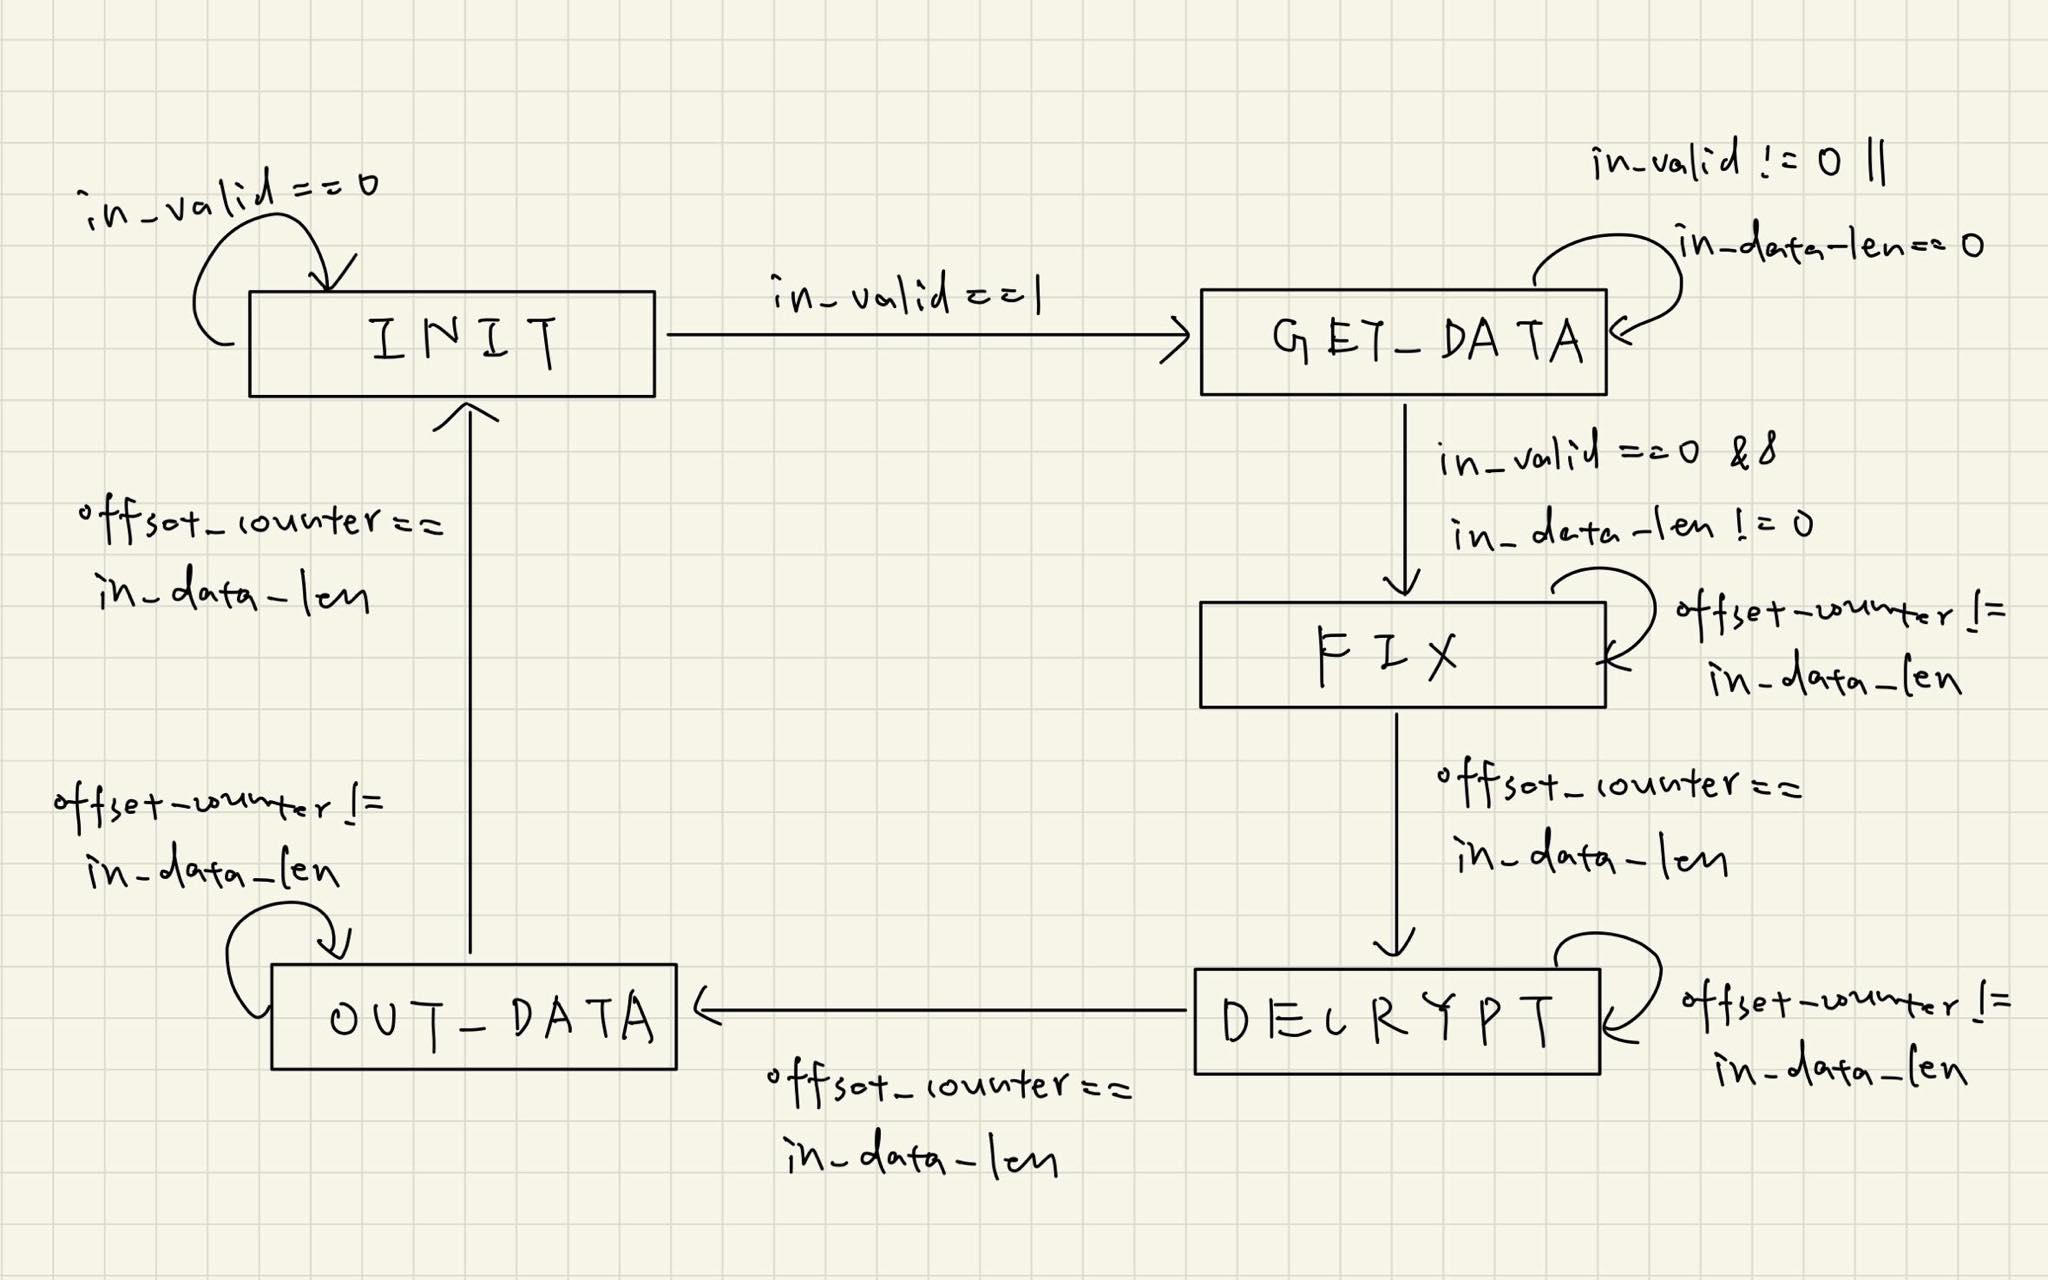 in_valid == 0
INIT
in_valid == 1
in_valid != 0 ||
in_data_len == 0
GET_DATA
in_valid == 0 &&
in_data_len != 0
FIX
offset_counter !=
in_data_len
offset_counter ==
in_data_len
DECRYPT
offset_counter !=
in_data_len
offset_counter ==
in_data_len
OUT_DATA
offset_counter !=
in_data_len
offset_counter ==
in_data_len